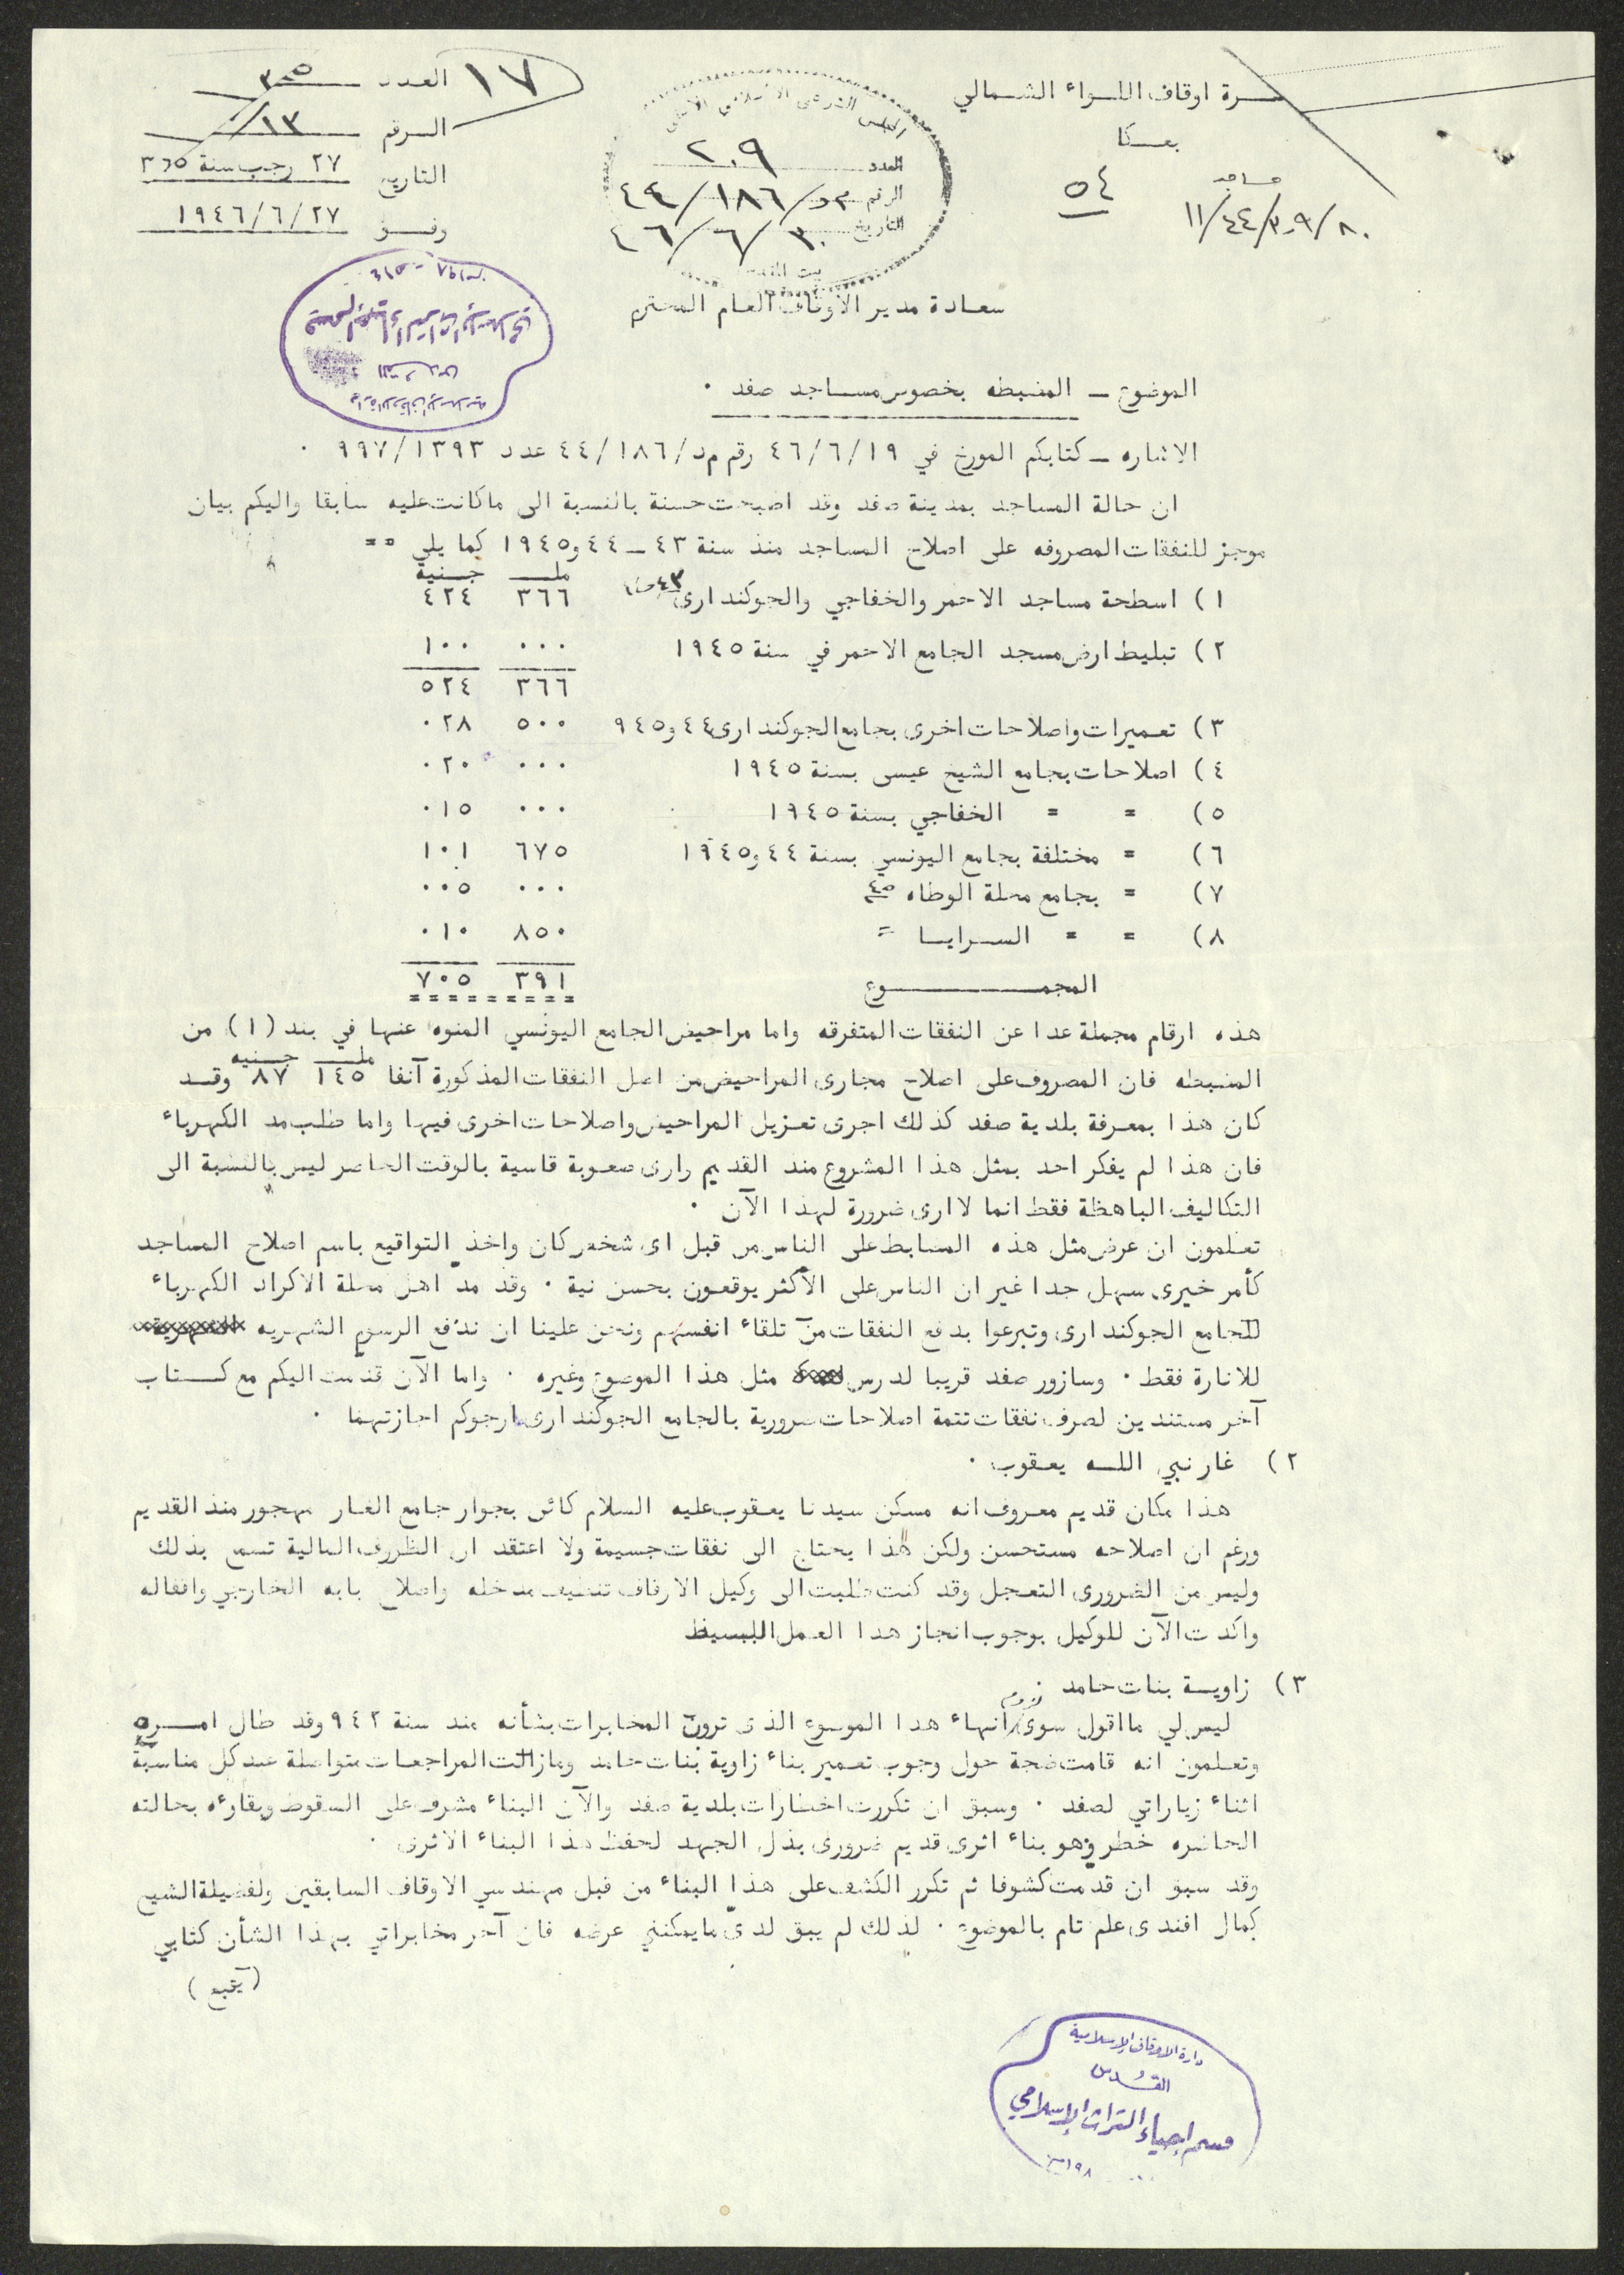 ـرة اوقاف اللـواء الشـمالي
بعـكا
٥٤
مساجد
١١/٤٤/٣٠٩/٨٠
١٧
العدد ٣٠٥
الـرقم ١٣/
التاريخ ٢٧ رجب سنة ٣٦٥
وفــق ١٩٤٦/٦/٢٧
المجلس الشرعي الاسلامي الاعلى
العدد ٢٠٩
الرقم م د/١٨٦/٤٤
التاريخ ٣٠/٦/٤٦
بيت المقدس
سعـادة مدير الاوقاف العـام المحتـرم
دارة الاوقاف الاسلامية
القـدس
قسم احياء التراث الاسلامي
الموضوع ـ المضبطه بخصوص مسـاجد صفد ٠
الاشاره ـ كتابكم المورخ في ٤٦/٦/١٩ رقم م د/٤٤/١٨٦ عدد ٩٩٧/١٣٩٣ ٠
ان حالة المساجد بمدينة صفد وقد اصبحت حسنة بالنسبة الى ماكانت عليه سابقا واليكم بيان
موجز للنفقات المصروفه على اصلاح المساجد منذ سنة ٤٣ ــ ٤٤ و١٩٤٥ كما يلي ==
ملـ جـنيه
١) اسطحة مساجد الاحمر والخفاجي والجوكندارى ٣٦٦ ٤٢٤
٢) تبليط ارض مسجد الجامع الاحمر في سنة ١٩٤٥ ٠٠٠ ١٠٠
٣٦٦ ٥٢٤
٣) تعميرات واصلاحات اخرى بجامع الجوكندارى ٤٤ و٩٤٥ ٥٠٠ ٠٢٨
٤) اصلاحات بجامع الشيخ عيسى بسنة ١٩٤٥ ٠٠٠ ٠٢٠
٥) = = الخفاجي بسنة ١٩٤٥ ٠٠٠ ٠١٥
٦) = مختلفة بجامع اليونسي بسنة ٤٤ و١٩٤٥ ٦٧٥ ١٠١
٧) = بجامع محلة الوطاه ٤٥ ٠٠٠ ٠٠٥
٨) = = السـرايـا = ٨٥٠ ٠١٠
المجمــــــوع ٣٩١ ٧٠٥
هذه ارقام مجملة عدا عن النفقات المتفرقه واما مراحيض الجامع اليونسي المنوه عنها في بند (١) من
ملـ جـنيه
المضبطه فان المصروف على اصلاح مجارى المراحيض من اصل النفقات المذكورة آنفا ١٤٥ ٨٧ وقـد
كان هذا بمعرفة بلدية صفد كذلك اجرى تعـزيل المراحيض واصلاحات اخرى فيها واما طلب مد الكهرباء
فان هذا لم يفكر احد بمثل هذا المشروع منذ القديم وارى صعوبة قاسية بالوقت الحاضر ليس بالنسبة الى
التكاليف الباهظة فقط انما لا ارى ضرورة لهذا الآن ٠
تعلمون ان عرض مثل هذه المضابط على الناس من قبل اى شخص كان واخذ التواقيع باسم اصلاح المساجد
كأمر خيرى سهل جدا غير ان الناس على الأكثر يوقعون بحسن نية ٠ وقد مد اهل محلة الاكراد الكهرباء
للجامع الجوكندارى وتبرعوا بدفع النفقات من تلقاء انفسهم ونحن علينا ان ندفع الرسوم الشهريه
للانارة فقط ٠ وسازور صفد قريبا لدرس مثل هذا الموضوع وغيره ٠ واما الآن قدمت اليكم مع كـتاب
آخر مستندين لصرف نفقات تتمة اصلاحات ضرورية بالجامع الجوكندارى ارجوكم اجازتهما ٠
٢) غار نبي اللـه يعـقوب ٠
هذا مكان قديم معروف انه مسكن سيدنا يعقوب عليه السلام كائن بجوار جامع الغـار مهجور منذ القديم
ورغم ان اصلاحه مستحسن ولكن هذا يحتاج الى نفقات جسيمة ولا اعتقد ان الظروف المالية تسمح بذلك
وليس من الضرورى التعـجل وقد كنت طلبت الى وكيل الاوقاف تنضيف مدخله واصلاح بابه الخارجي واقفاله
واكدت الآن للوكيل بوجوب انجاز هذا العـمل البسيط
٣) زاويـة بنات حامد ٠
ليس لي ما اقول سوى لزوم انهاء هذا الموضوع الذى ترون المخابرات بشأنه منذ سنة ٩٤٢ وقد طال امــره
وتعـلمون انه قامت ضجة حول وجوب تعـمير بناء زاوية بنات حامد ومازالت المراجعـات متواصلة عند كل مناسبة
اثناء زياراتي لصفد ٠ وسبق ان تكررت اخطارات بلدية صفد والآن البناء مشرف على السقوط وبقاؤه بحالته
الحاضره خطر وهو بناء اثرى قديم ضرورى بذل الجهد لحفظ هذا البناء الاثرى ٠
وقد سبق ان قدمت كشوفا ثم تكرر الكشف على هذا البناء من قبل مهندسي الاوقاف السابقين ولفضيلة الشيخ
كمال افندى علم تام بالموضوع ٠ لذلك لم يبق لدى مايمكنني عرضه فان آخر مخابراتي بهذا الشأن كتابي
(يتبع)
دارة الاوقاف الاسلامية
القـدس
قسم احياء التراث الاسلامي